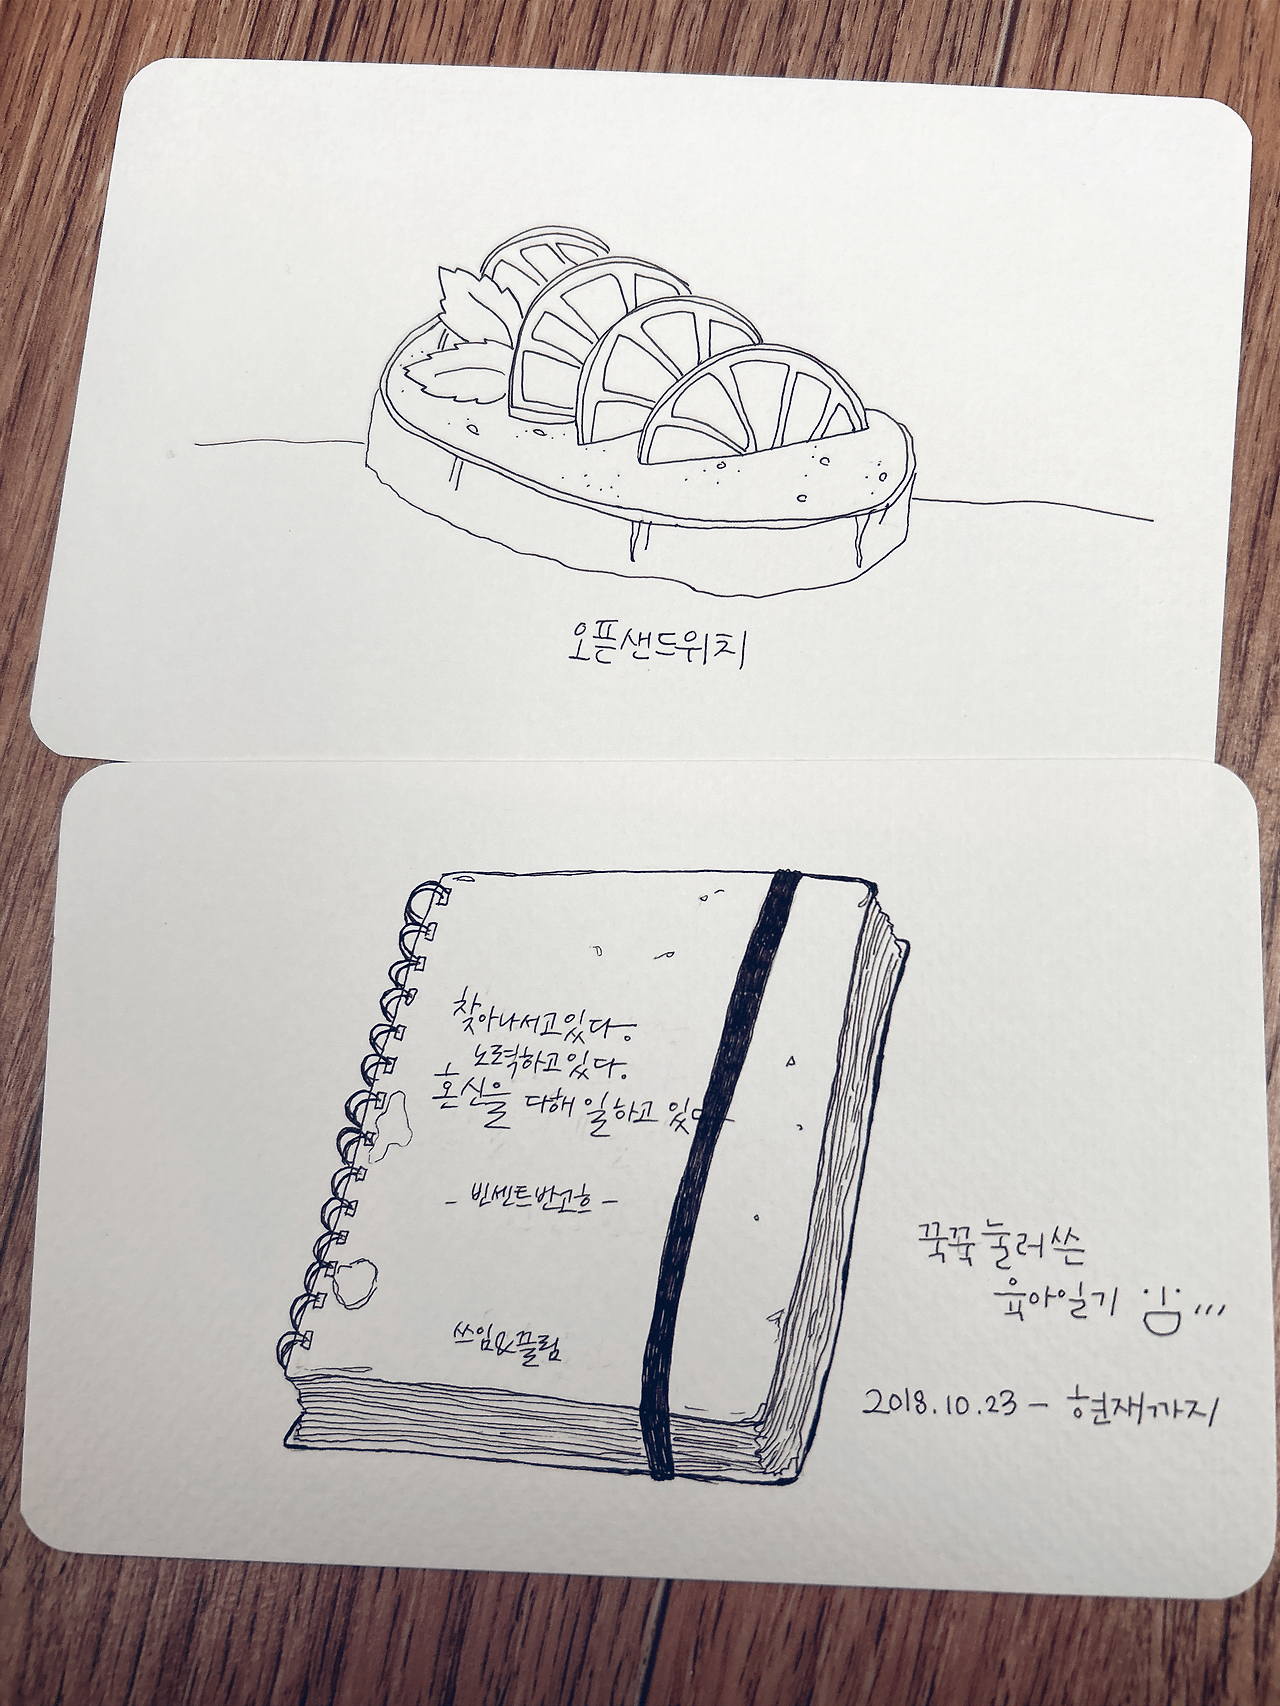 오픈샌드위치
찾아나서고있다.
노력하고있다.
혼신을 다해 일하고 있다
- 빈센트반고흐 -
쓰임&끌림
꾹꾹 눌러쓴
육아일기
2018.10.23 - 현재까지